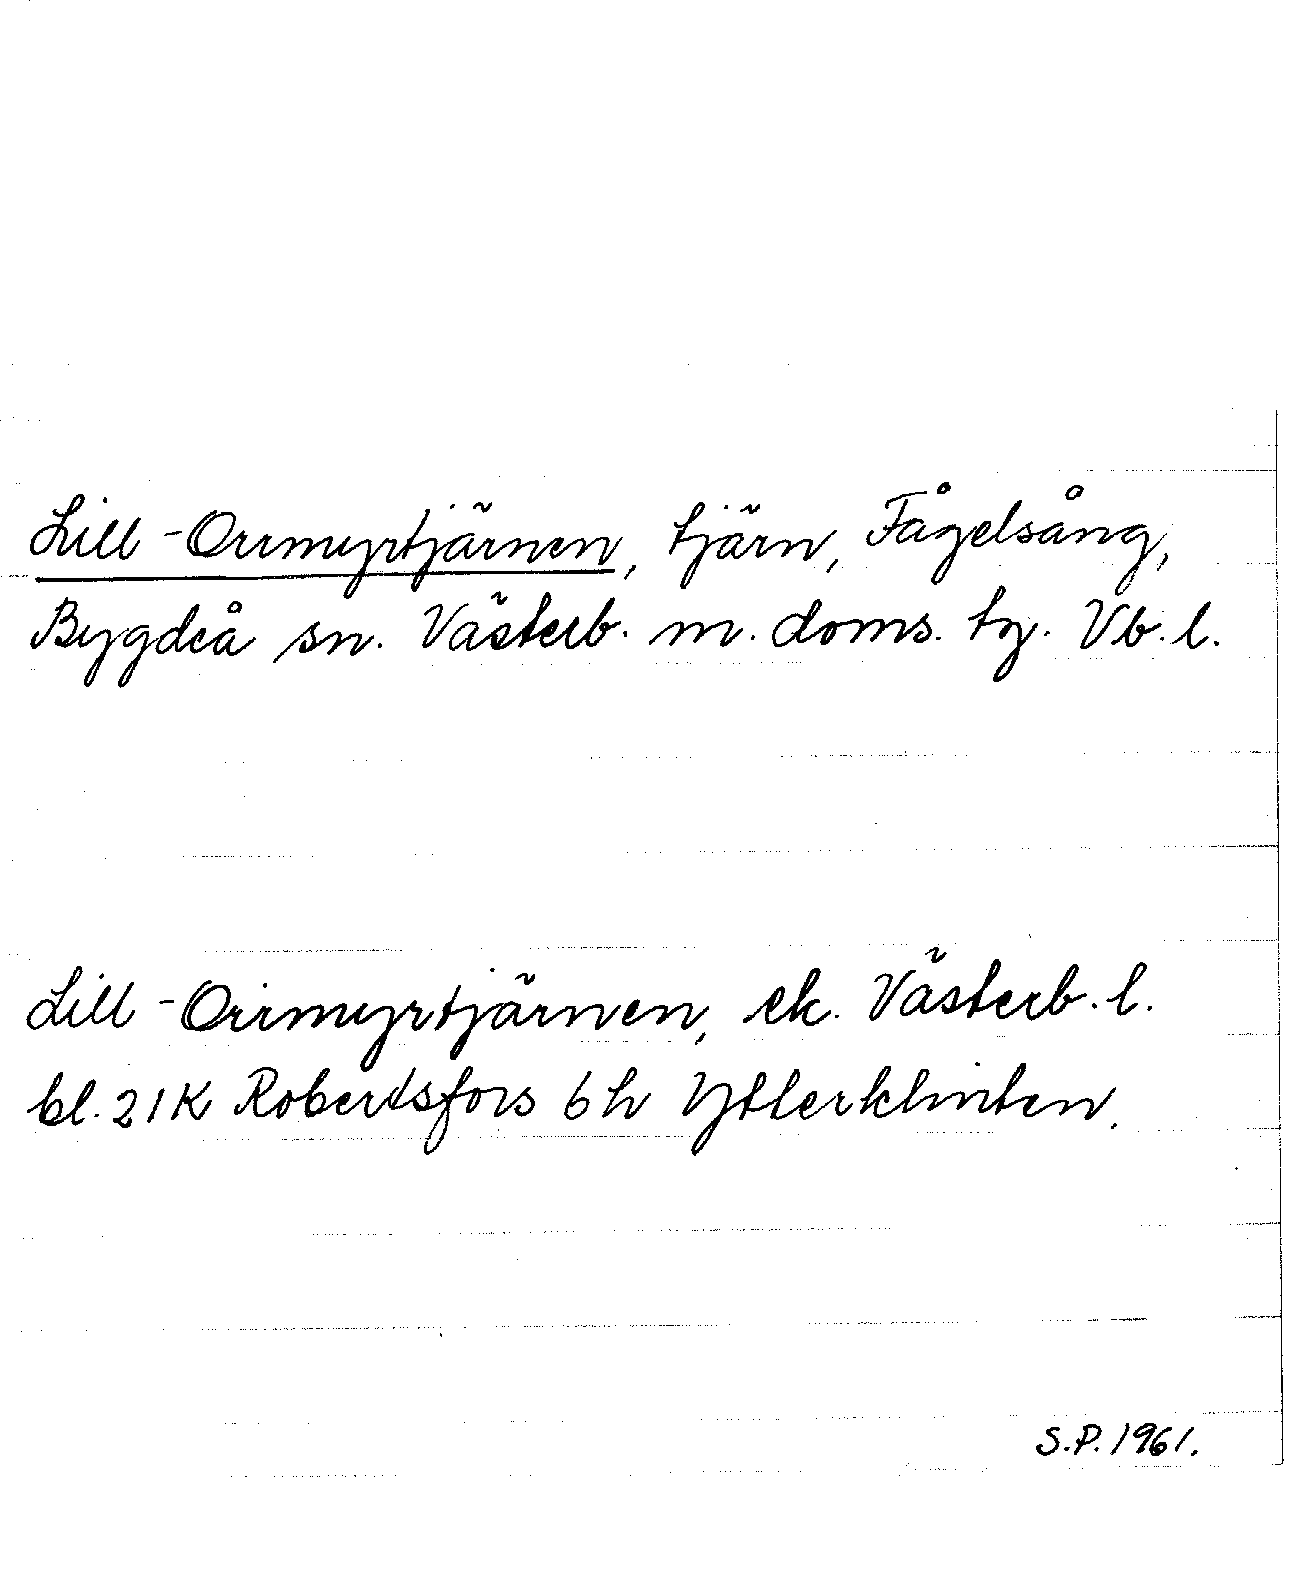 Lill-Orrmyrtjärnen, tjärn, Fågelsång,
Bygdeå sn. Västerb. m. doms. tg. Vb. l.
Lill-Orrmyrtjärnen, ek. Västerb. l.
bl. 21K Robertsfors 6h Ytterklinten.
S.P. 1961.